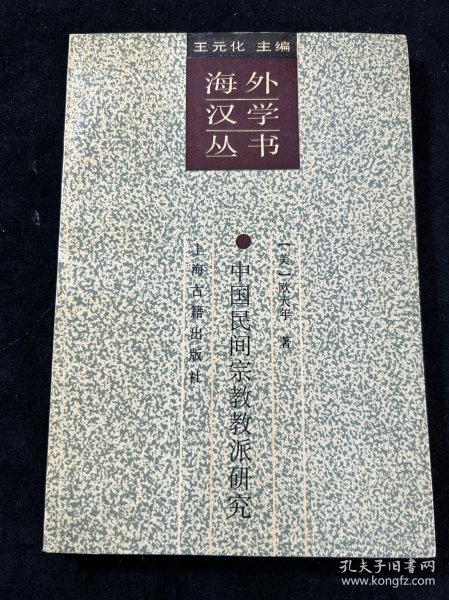 王元化 主编
海外
汉学
丛书
[美]欧大年 著
中国民间宗教教派研究
上海古籍出版社
孔夫子旧书网
www.kongfz.com